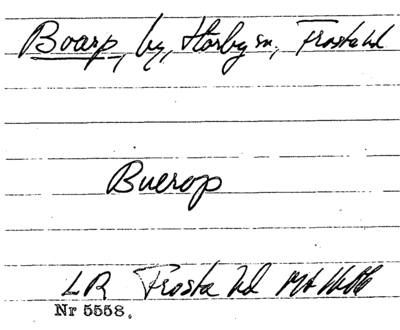 Boarp, by, Horby sn, Frosta hd
Buerop
LR Frosta hd
Nr 5558.